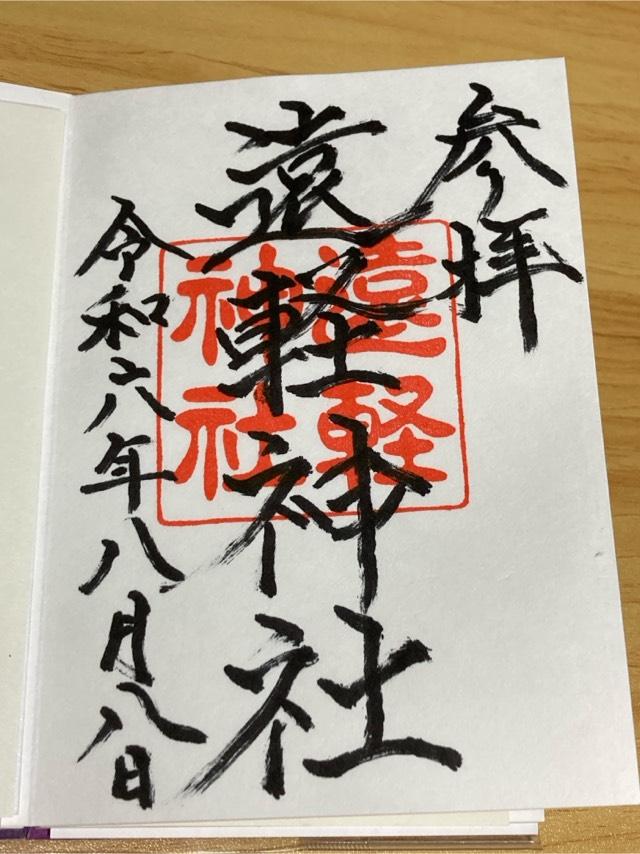 参拝
遠軽神社
遠軽
神社
令和六年八月八日